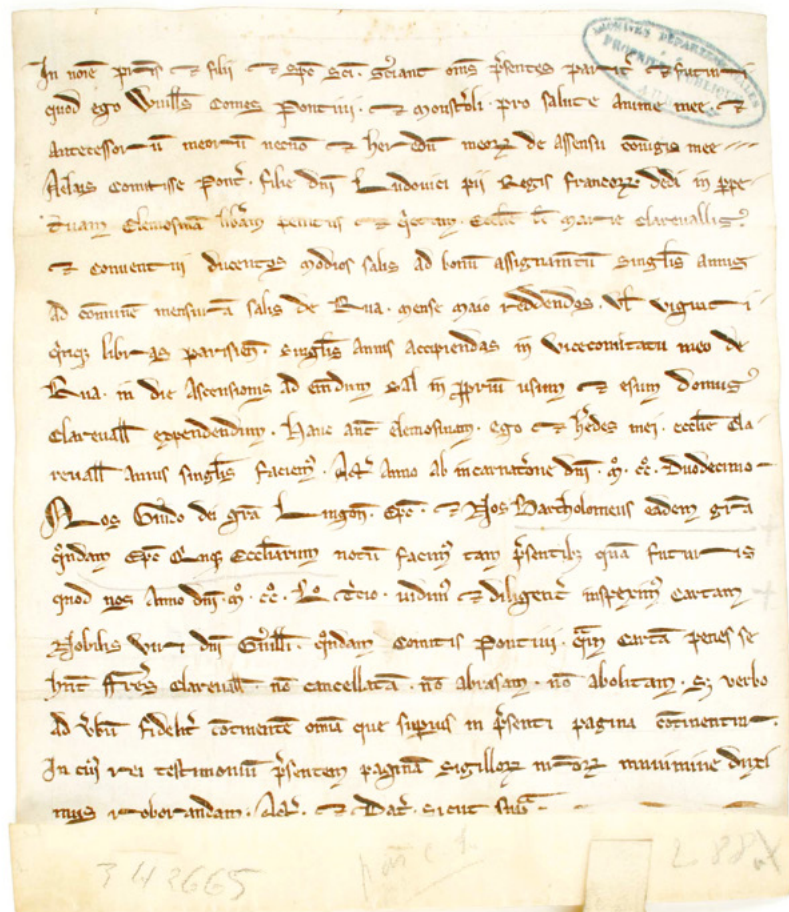 In noīe pr̄is ⁊ filii ⁊ sp̄c sc̄i. Sciant om̄s p̄sentes parit̄ ⁊ futuri
quod ego Will̄s Comes Pontiui. ⁊ Monst̄oli. pro salute anime mee. ⁊
Antecessorū meorū necnō ⁊ heredū meoꝝ de Assensu cōiugis mee
Aelais Comitisse Pont̄. filie dn̄i Ludouici pii Regis francoꝝ. dedi in ꝑpe
tuam Elemosinā lib̄am penitus ⁊ q̓etam. Eccl̄ie b̄e Marie Clareuallis.
⁊ Conuentui ducentos modios salis ad bonū assignam̄tū singl̄is annis
Ad cōmunē mensurā salis de Rua. mense Maio reddendos. Vl̄ viginti
q̓nqꝫ libras parisien̄. singl̄is Annis Accipiendas in vicecomitatu meo de
Rua. in die Ascensionis ad emdum sal in ꝓpriū usum ⁊ esum domus
Clareuall̄ expendendum. Hanc aut̄ elemosinam. ego ⁊ h̄edes mei. eccl̄ie Cla
reuall̄ Annis singl̄is faciem᷒. Act̄ Anno ab incarnat̄one dn̄i. M̊. cc̊. Duodecimo
Nos Guido dei gr̄a Lingon̄. Ep̄c. ⁊ Nos Bartholomeus eadem gr̄a
q̓ndam Ep̄c Quinqꝫ Eccl̄iarum notū facim᷒ tam p̄sentibꝫ quā futuris
quod nos Anno dn̄i. M̊. cc̊. L̊. t̄cio. uidim᷒ ⁊ diligent̄ inspexim᷒ cartam
Nobilis viri dn̄i Guill̄i. q̓ndam Comitis Pontiui. q̄m cartā penes se
hn̄t ffr̄es Clareuall̄. nō cancellatā. nō abrasam. nō abolitam. sꝫ verbo
Ad v̄bū fidelit̄ cōtinentē om̄ia que superius in p̄senti pagina cōtinentur.
In cui᷒ rei testimoniū p̄sentem paginā sigilloꝝ nr̄oꝝ munimine duxi
mus roborandam. Act̄. ⁊ Dat̄. sicut sup̄a
342665
L 88